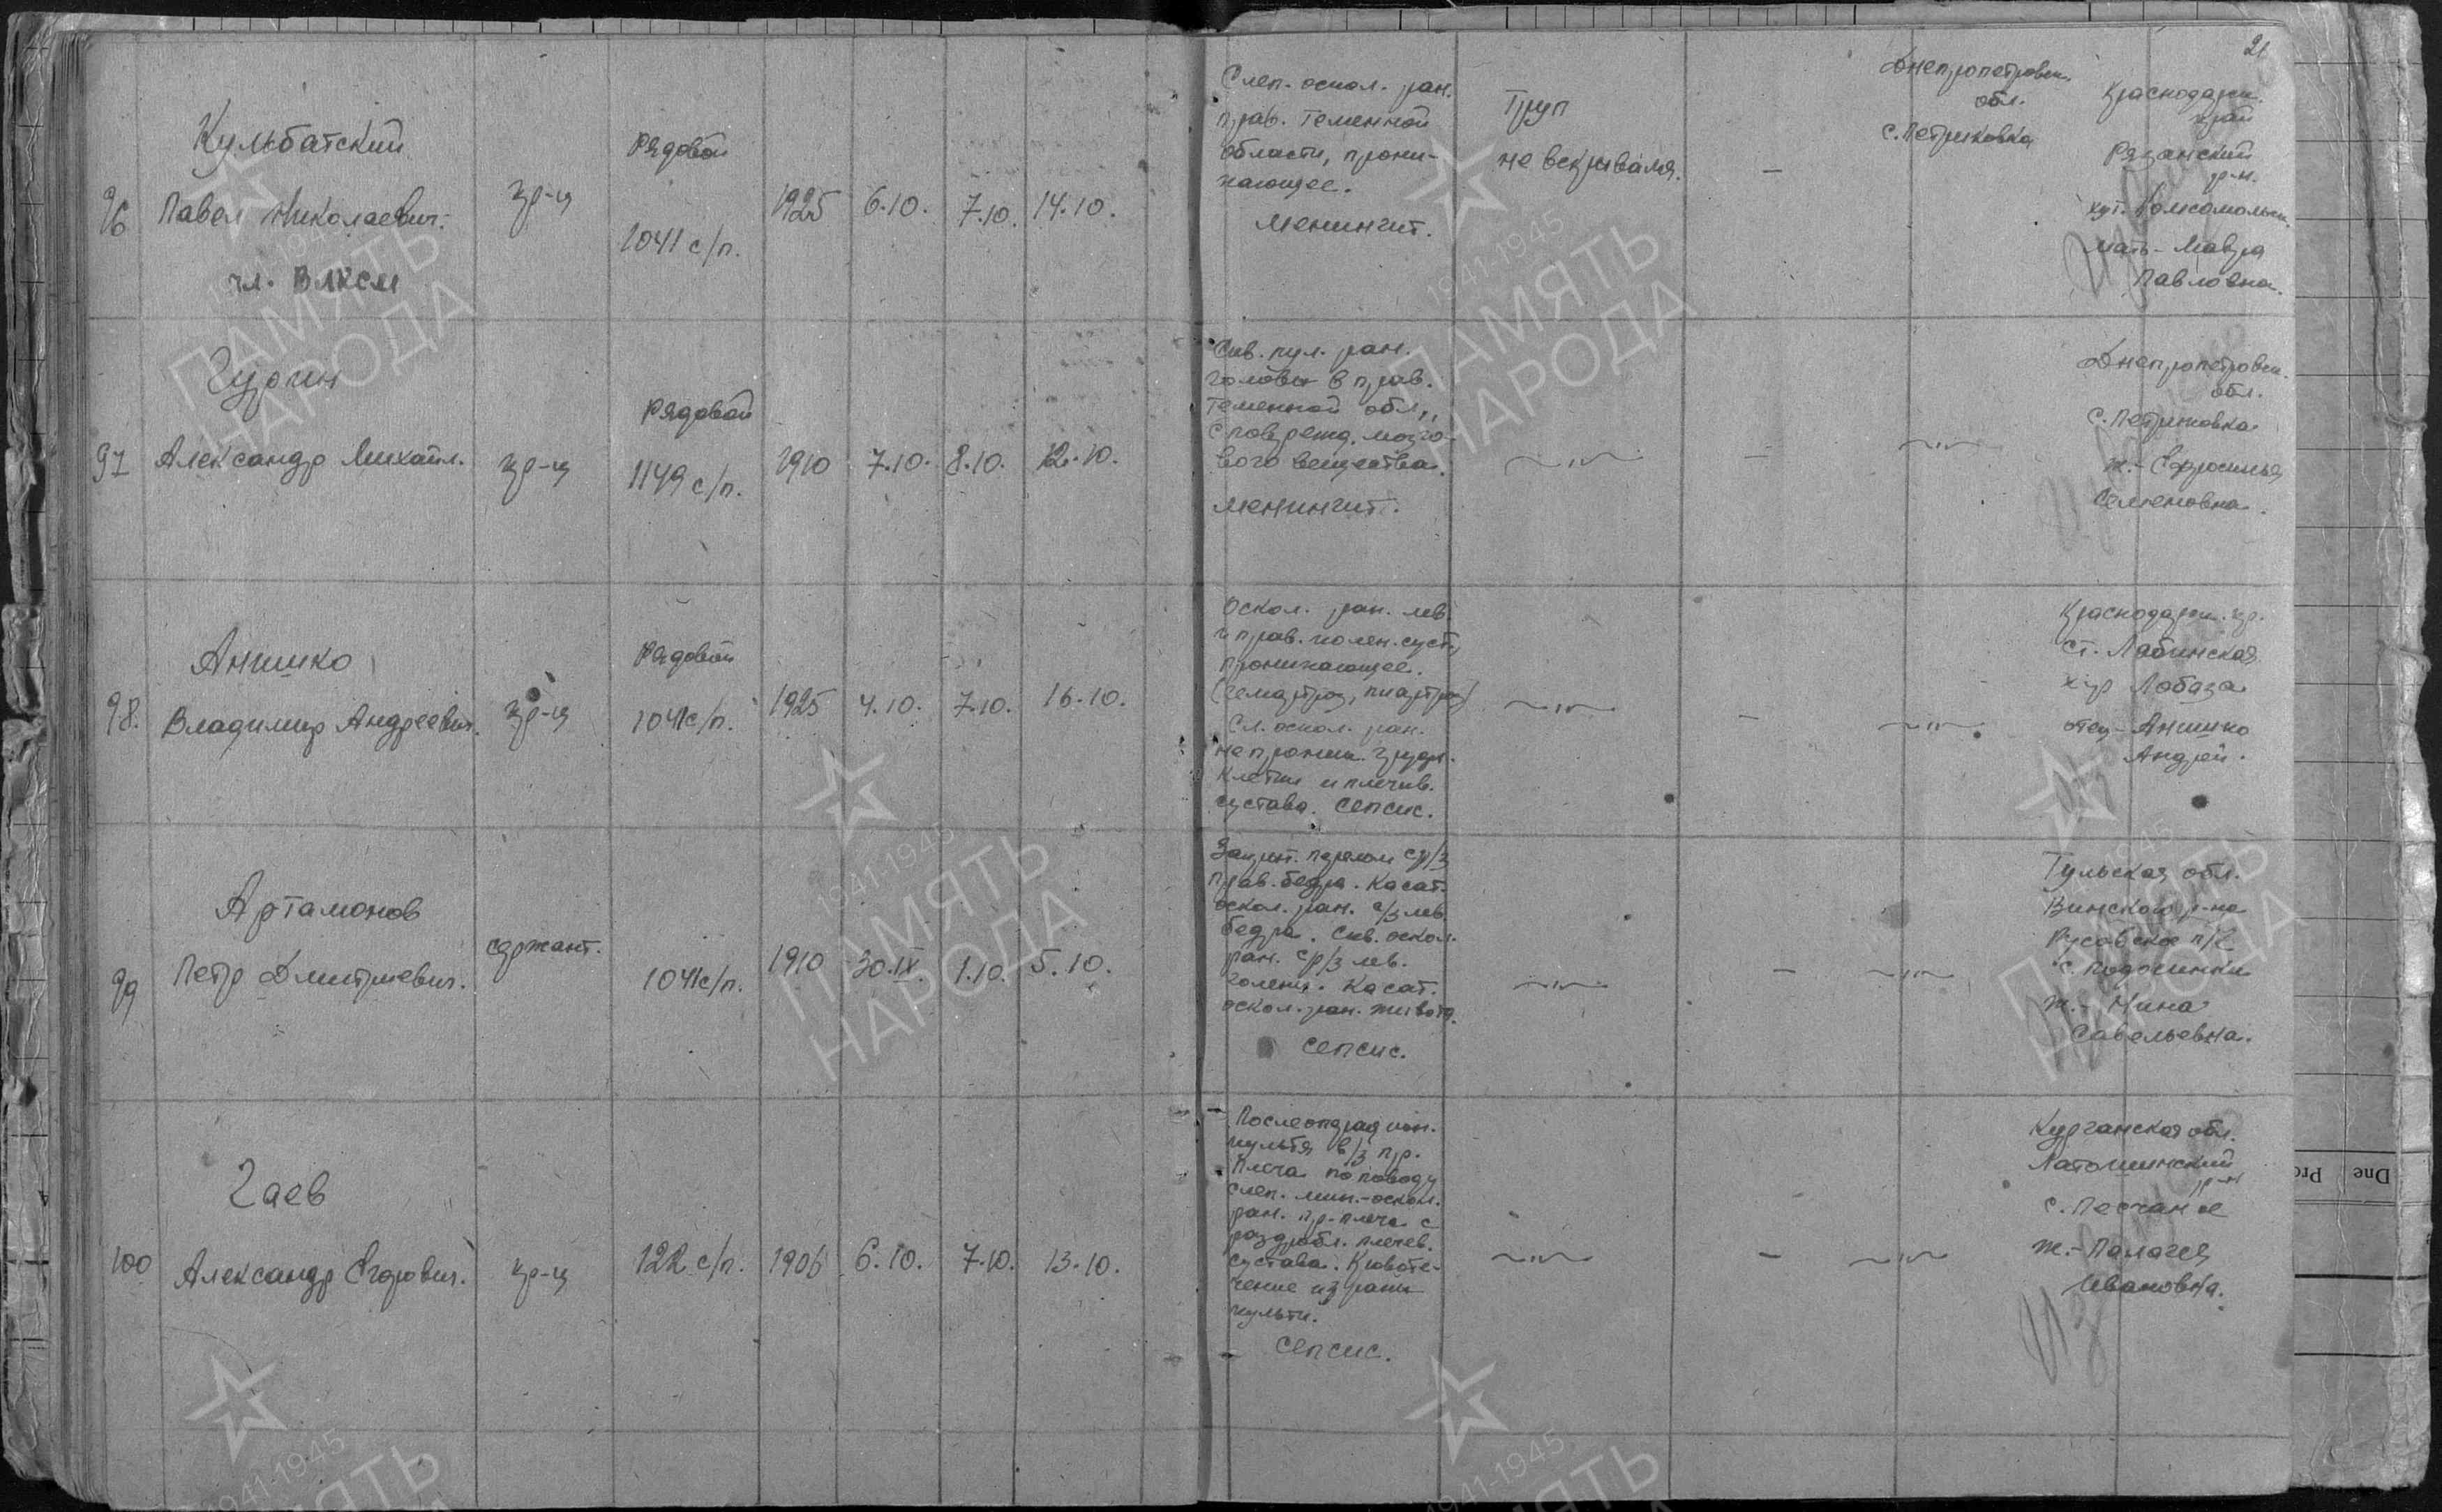 21
96
Кульбатский
Павел Николаевич.
чл. ВЛКСМ
кр-ц
Рядовой
1041 с/п.
1925
6.10.
7.10.
14.10.
Слеп. оскол. ран.
прав. теменной
области, прони-
кающее.
Менингит.
Труп
не вскрывался.
-
Днепропетровск.
обл.
с. Петриковка
Краснодарск.
край
Рязанский
р-н.
хут. Комсомольск.
мать - Мавра
Павловна.
97
Гургин
Александр Михайл.
кр-ц
Рядовой
1149 с/п.
1910
7.10.
8.10.
12.10.
Скв. пул. ран.
головы в прав.
теменной обл.,
с поврежд. мозго-
вого вещества.
менингит.
—"—
-
—"—
Днепропетровск.
обл.
с. Петриковка
ж. - Ефросинья
Семеновна.
98.
Анишко
Владимир Андреевич.
кр-ц
Рядовой
1041 с/п.
1925
4.10.
7.10.
16.10.
Оскол. ран. лев.
и прав. колен. суст.,
проникающее.
(гемартроз, пиартроз)
Сл. оскол. ран.
не проник. грудн.
клетки и плечев.
сустава. Сепсис.
—"—
-
—"—
Краснодарск. кр.
ст. Лабинская
хут Лобаза
отец - Анишко
Андрей.
99
Артамонов
Петр Дмитриевич.
сержант.
1041 с/п.
1910
30.IX.
1.10.
5.10.
Закрыт. перелом ср/з
прав. бедра. Касат.
оскол. ран. с/з лев.
бедра. Скв. оскол.
ран. ср/з лев.
голени. Касат.
оскол. ран. живота.
Сепсис.
—"—
-
—"—
Тульская обл.
р-на
п/о
с.
ж. - Нина
Савельевна.
100
Гаев
Александр Егорович.
кр-ц
122 с/п.
1906
6.10.
7.10.
13.10.
Послеоперацион.
культя в/з пр.
плеча по поводу
слеп. мин.-оскол.
ран. пр. плеча с
раздробл. плечев.
сустава. Кровоте-
чение из раны
культи.
Сепсис.
—"—
-
—"—
Курганская обл.
р-н
с. Песчаное
ж. - Палагея
Ивановна.
Dne
Pro
1941-1945
ПАМЯТЬ
НАРОДА